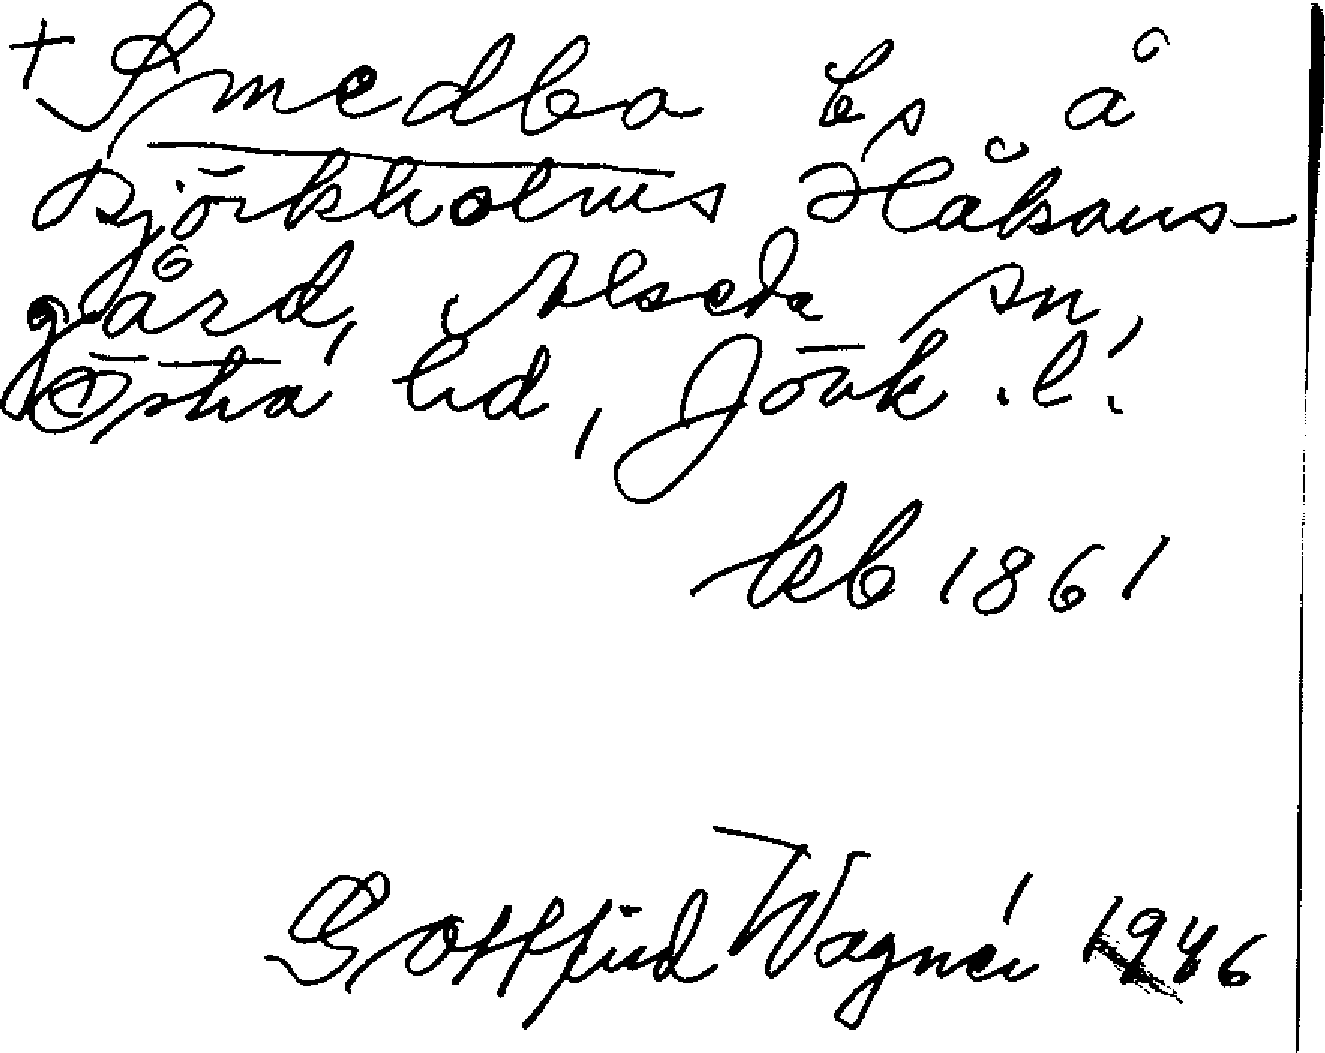 + Smedbo Ls å
Björkholms Håkans-
gård, Alseda sn,
Östra hd, Jönk. l.
kb 1861
Gottfrid Wagnér 1946